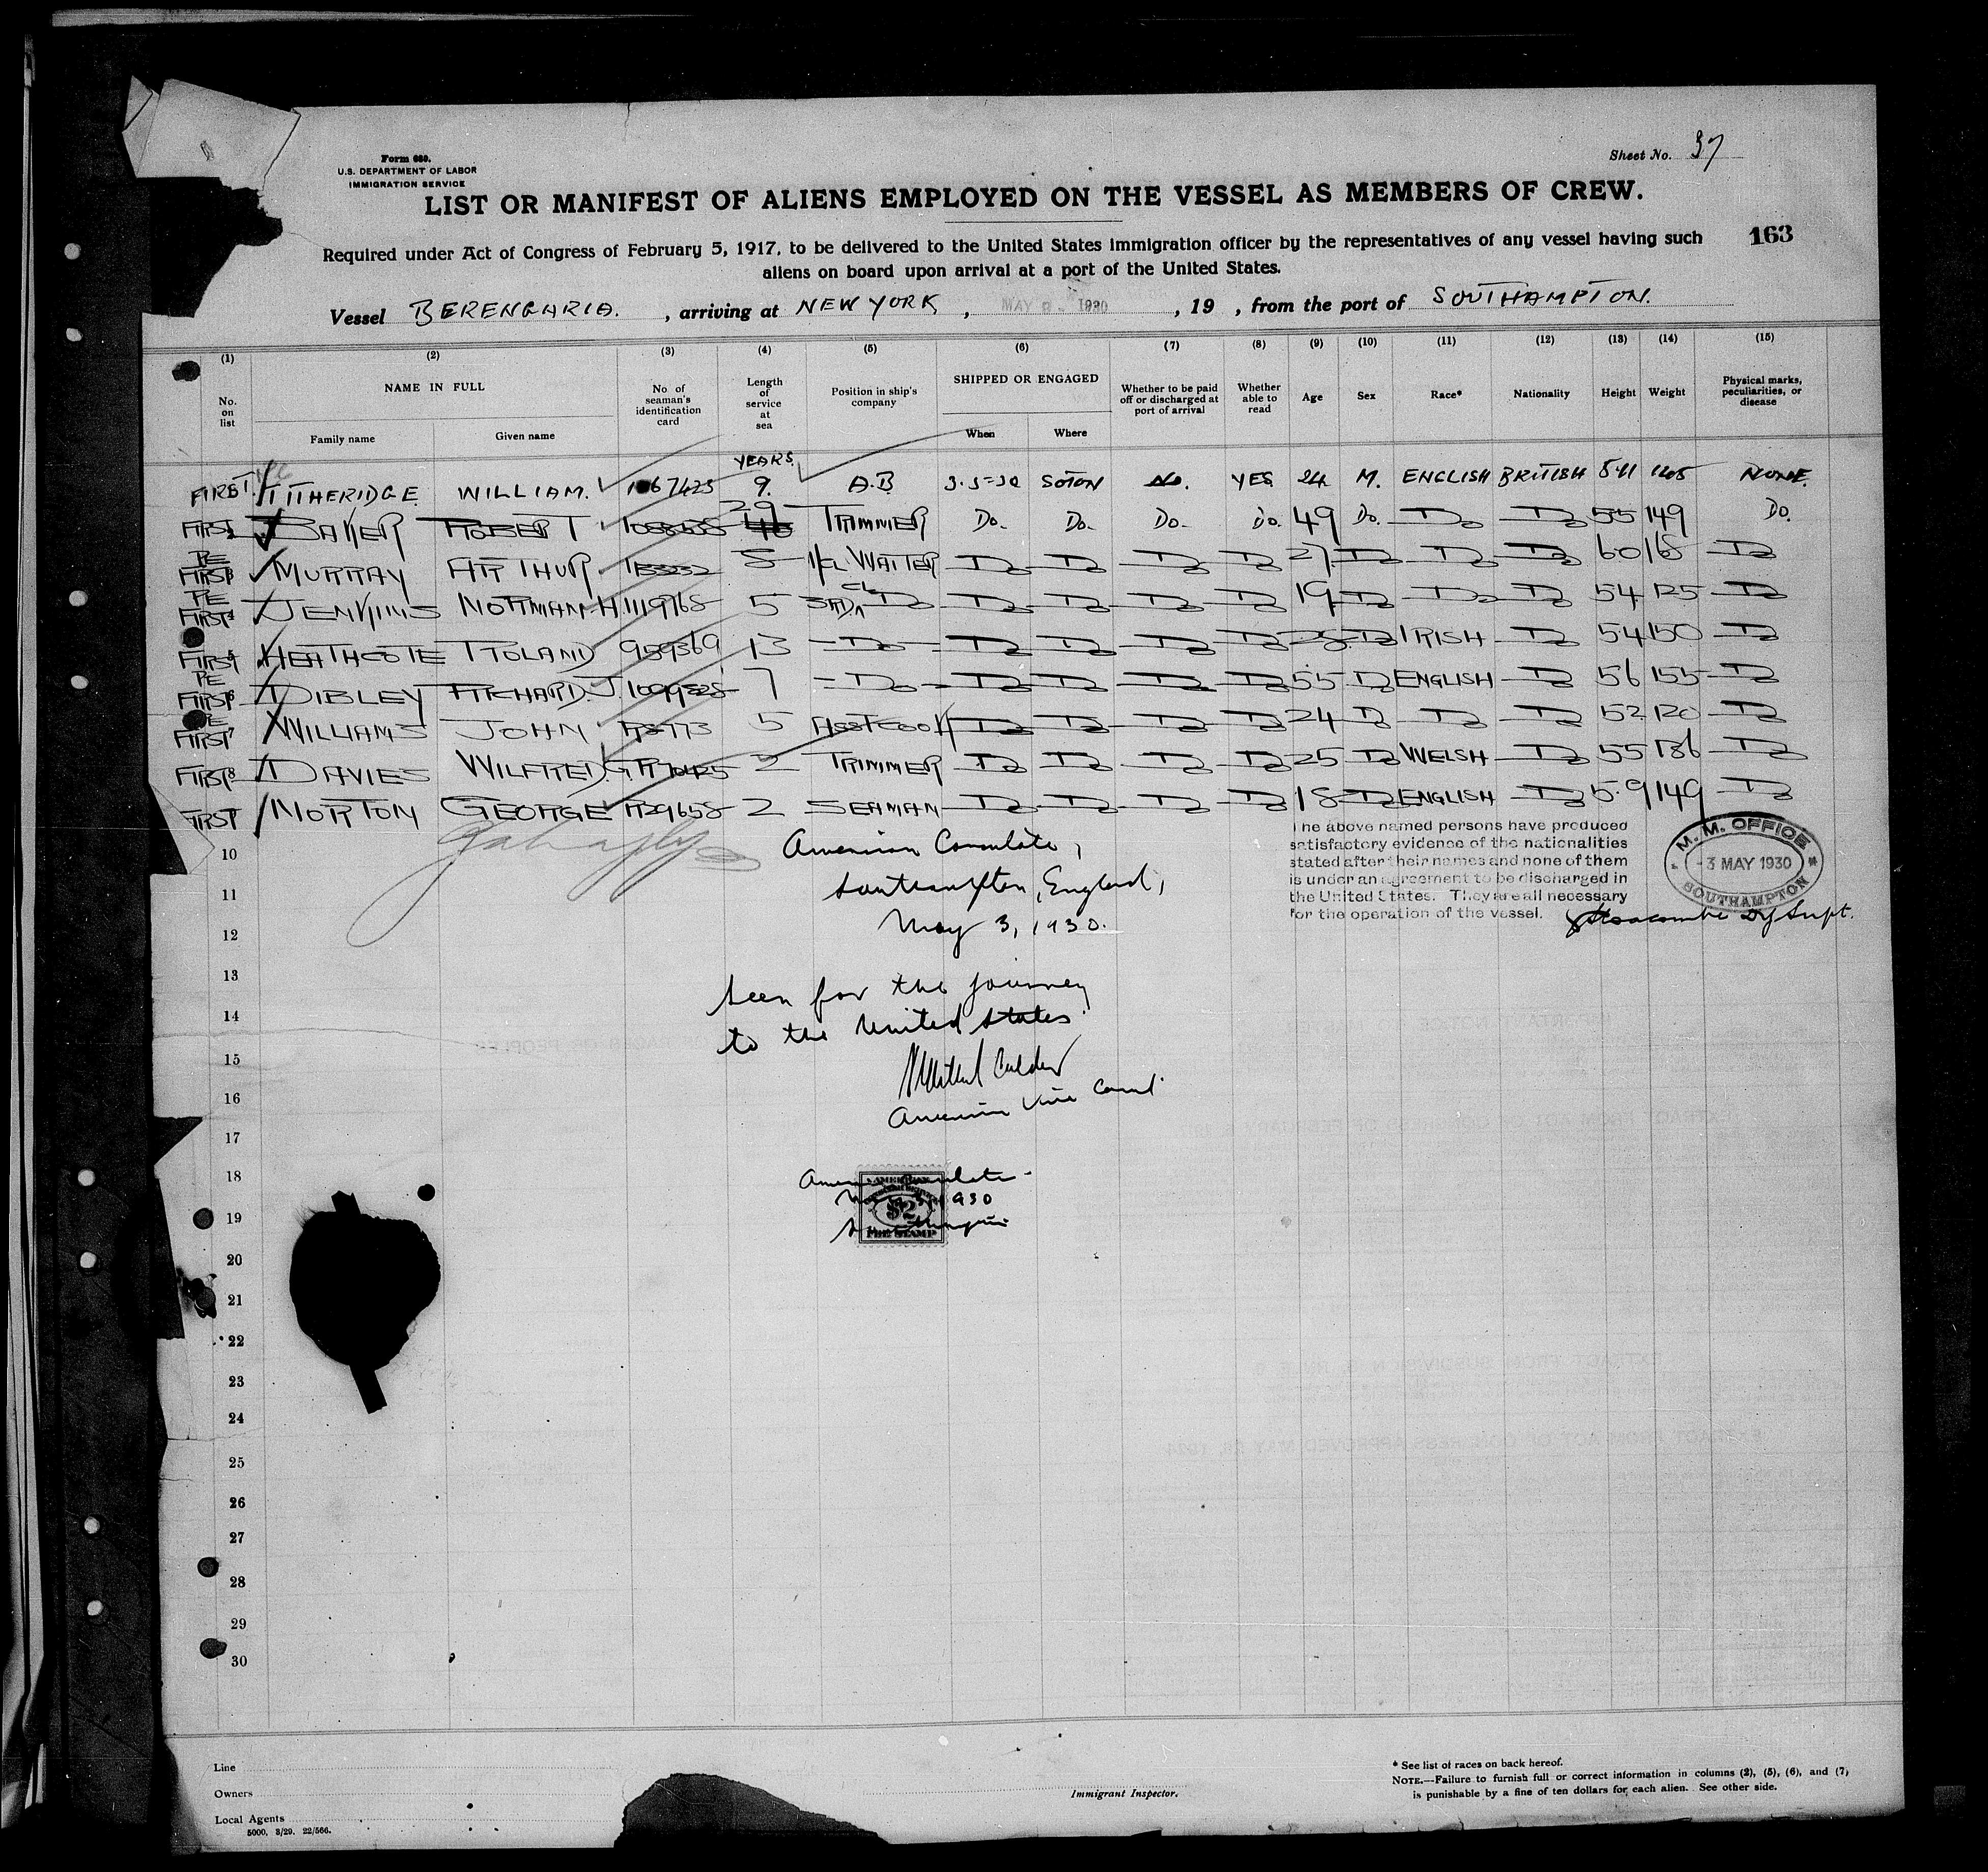 Form 680.
U.S. DEPARTMENT OF LABOR
IMMIGRATION SERVICE
Sheet No. 37
LIST OR MANIFEST OF ALIENS EMPLOYED ON THE VESSEL AS MEMBERS OF CREW.
163
Required under Act of Congress of February 5, 1917, to be delivered to the United States immigration officer by the representatives of any vessel having such
aliens on board upon arrival at a port of the United States.
Vessel BERENGARIA. , arriving at NEW YORK , MAY 1930 , 19 , from the port of SOUTHAMPTON.
(1) (2) (3) (4) (5) (6) (7) (8) (9) (10) (11) (12) (13) (14) (15)
No. on list NAME IN FULL Family name Given name No. of seaman's identification card Length of service at sea Position in ship's company SHIPPED OR ENGAGED When Where Whether to be paid off or discharged at port of arrival Whether able to read Age Sex Race* Nationality Height Weight Physical marks, peculiarities, or disease
YEARS.
FIRST TITHERIDGE WILLIAM. 9. A.B SOTON No. YES 24 M. ENGLISH BRITISH 5-11 NONE.
FIRST BAKER ROBERT 29 TRIMMER Do. Do. Do. Do. 49 Do. Do Do 55 149 Do.
RE FIRST MURRAY ARTHUR 8 WAITER Do Do Do Do 27 Do Do Do 60 168 Do
RE FIRST JENKINS NORMAN H 1119768 5 3RD CL Do Do Do Do Do 19 Do Do Do 54 125 Do
FIRST HEATHCOTE ROLAND 959369 13 Do Do Do Do Do 28 Do IRISH Do 54 150 Do
RE FIRST DIBLEY RICHARD. J. 1099828 7 Do Do Do Do Do 55 Do ENGLISH Do 56 155 Do
RE FIRST WILLIAMS JOHN 5 ASST COOK Do Do Do Do 24 Do Do Do 52 120 Do
FIRST DAVIES WILFRED. G 2 TRIMMER Do Do Do Do 25 Do WELSH Do 55 136 Do
FIRST MORTON GEORGE R29658 2 SEAMAN Do Do Do Do 18 Do ENGLISH Do 5.9 149 Do
American Consulate,
Southampton, England,
May 3, 1930.
The above named persons have produced
satisfactory evidence of the nationalities
stated after their names and none of them
is under an agreement to be discharged in
the United States. They are all necessary
for the operation of the vessel.
M. M. OFFICE
-3 MAY 1930
SOUTHAMPTON
Dy Supt.
Seen for the journey
to the United States.
American Vice Consul
American Consulate
1930
$2
FEE STAMP
10
11
12
13
14
15
16
17
18
19
20
21
22
23
24
25
26
27
28
29
30
Line
Owners
Local Agents
5000, 3/29. 22/566.
Immigrant Inspector.
* See list of races on back hereof.
NOTE.—Failure to furnish full or correct information in columns (2), (5), (6), and (7)
is punishable by a fine of ten dollars for each alien. See other side.